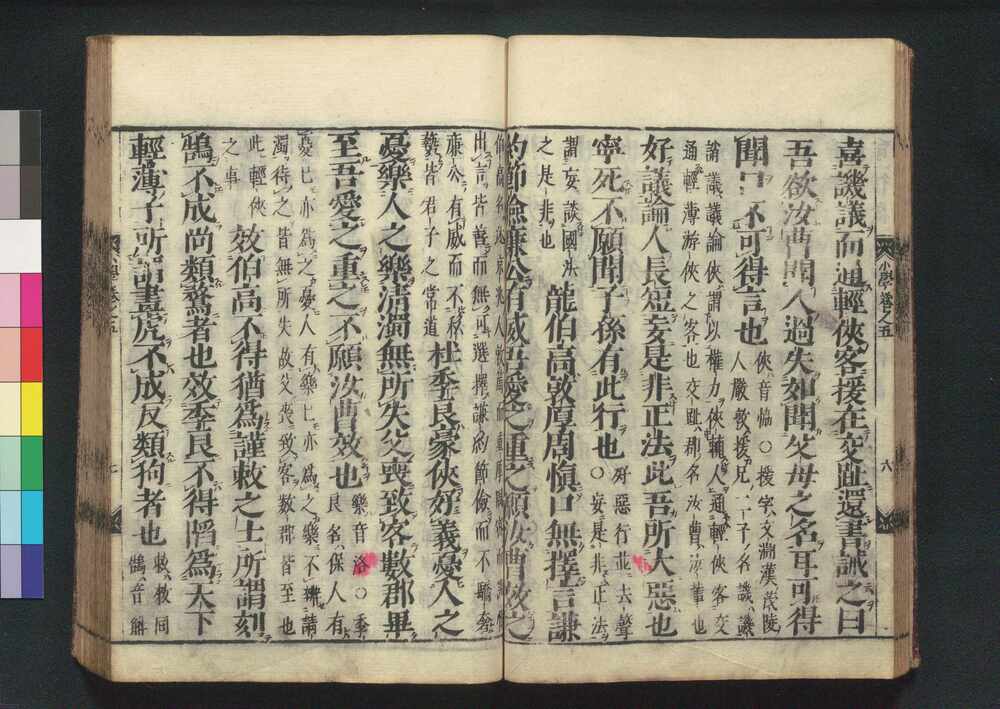 小學卷之五
六
喜譏議而通輕俠客援在交趾還書誡之曰
吾欲汝曹聞人過失如聞父母之名耳可得
聞口不可得言也
俠音恊○援字文淵漢茂陵
人嚴敦援兄二子名譏譏
誚議議論俠謂以權力俠輔人通輕俠客交
通輕薄游俠之客也交趾郡名汝曹汝輩也
好議論人長短妄是非正法此吾所大惡也
寧死不願聞子孫有此行也
好惡行並去聲
○妄是非正法
謂妄談國法
之是非也
龍伯高敦厚周愼口無擇言謙
約節儉廉公有威吾愛之重之願汝曹效之
出言皆善而無可選擇謙約節儉而不驕奢
廉公有威而不私
褻皆君子之常道
杜季良豪俠好義憂人之
憂樂人之樂淸濁無所失父喪致客數郡畢
至吾愛之重之不願汝曹效也
樂音洛○季
良名保人有
憂己亦爲之憂人有樂己亦爲之樂不擇請
濁待之皆無所失故父喪致客數郡皆至也
此輕俠
之事
效伯高不得猶爲謹敕之士所謂刻
鵠不成尚類鶩者也效季良不得陷爲天下
輕薄子所謂畫虎不成反類狗者也
敕敕同
鵠音斛
小學卷之五
七